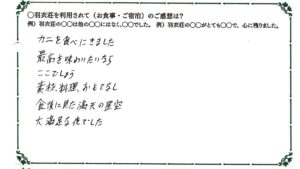 ○羽衣荘を利用されて(お食事・ご宿泊)のご感想は?
例)羽衣荘の○○は他の○○にはなく、○○でした。 例)羽衣荘の○○がとても○○で、心に残りました。
カニを食べにきました
最高を味わいたいなら
ここでしょう
素材、料理、おもてなし
食後に見た満天の星空
大満足な夜でした